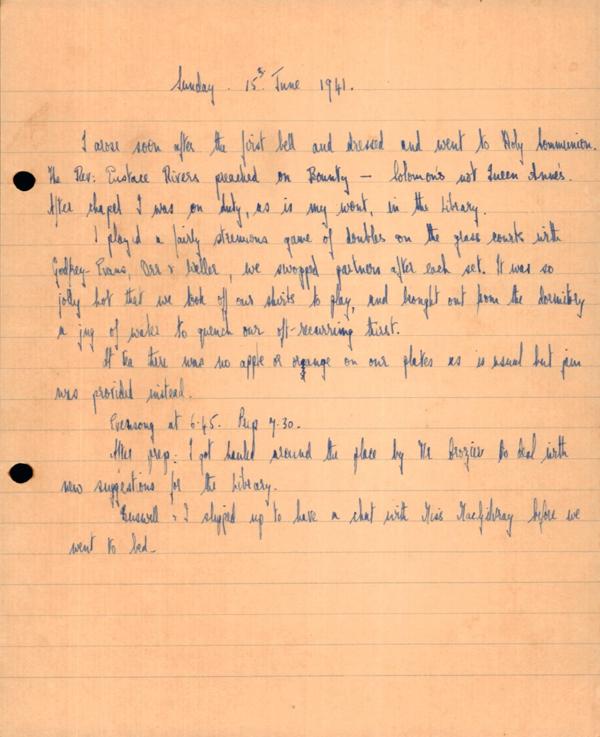 Sunday. 15th June 1941.
I arose soon after the first bell and dressed and went to Holy Communion.
The Rev: Eustace Rivers preached on Bounty – Solomon's not Queen Anne's.
After chapel I was on duty, as is my wont, in the Library.
I played a fairly strenuous game of doubles on the grass courts with
Godfrey-Evans, Orr & Weller, we swopped partners after each set. It was so
jolly hot that we took off our shirts to play, and brought out from the dormitory
a jug of water to quench our oft-recurring thirst.
At tea there was no apple or orange on our plates as is usual but jam
was provided instead.
Evensong at 6.45. Prep 7.30.
After prep: I got hauled around the place by Mr. Crozier to deal with
new suggestions for the Library.
I slipped up to have a chat with Miss MacGilvray before we
went to bed.